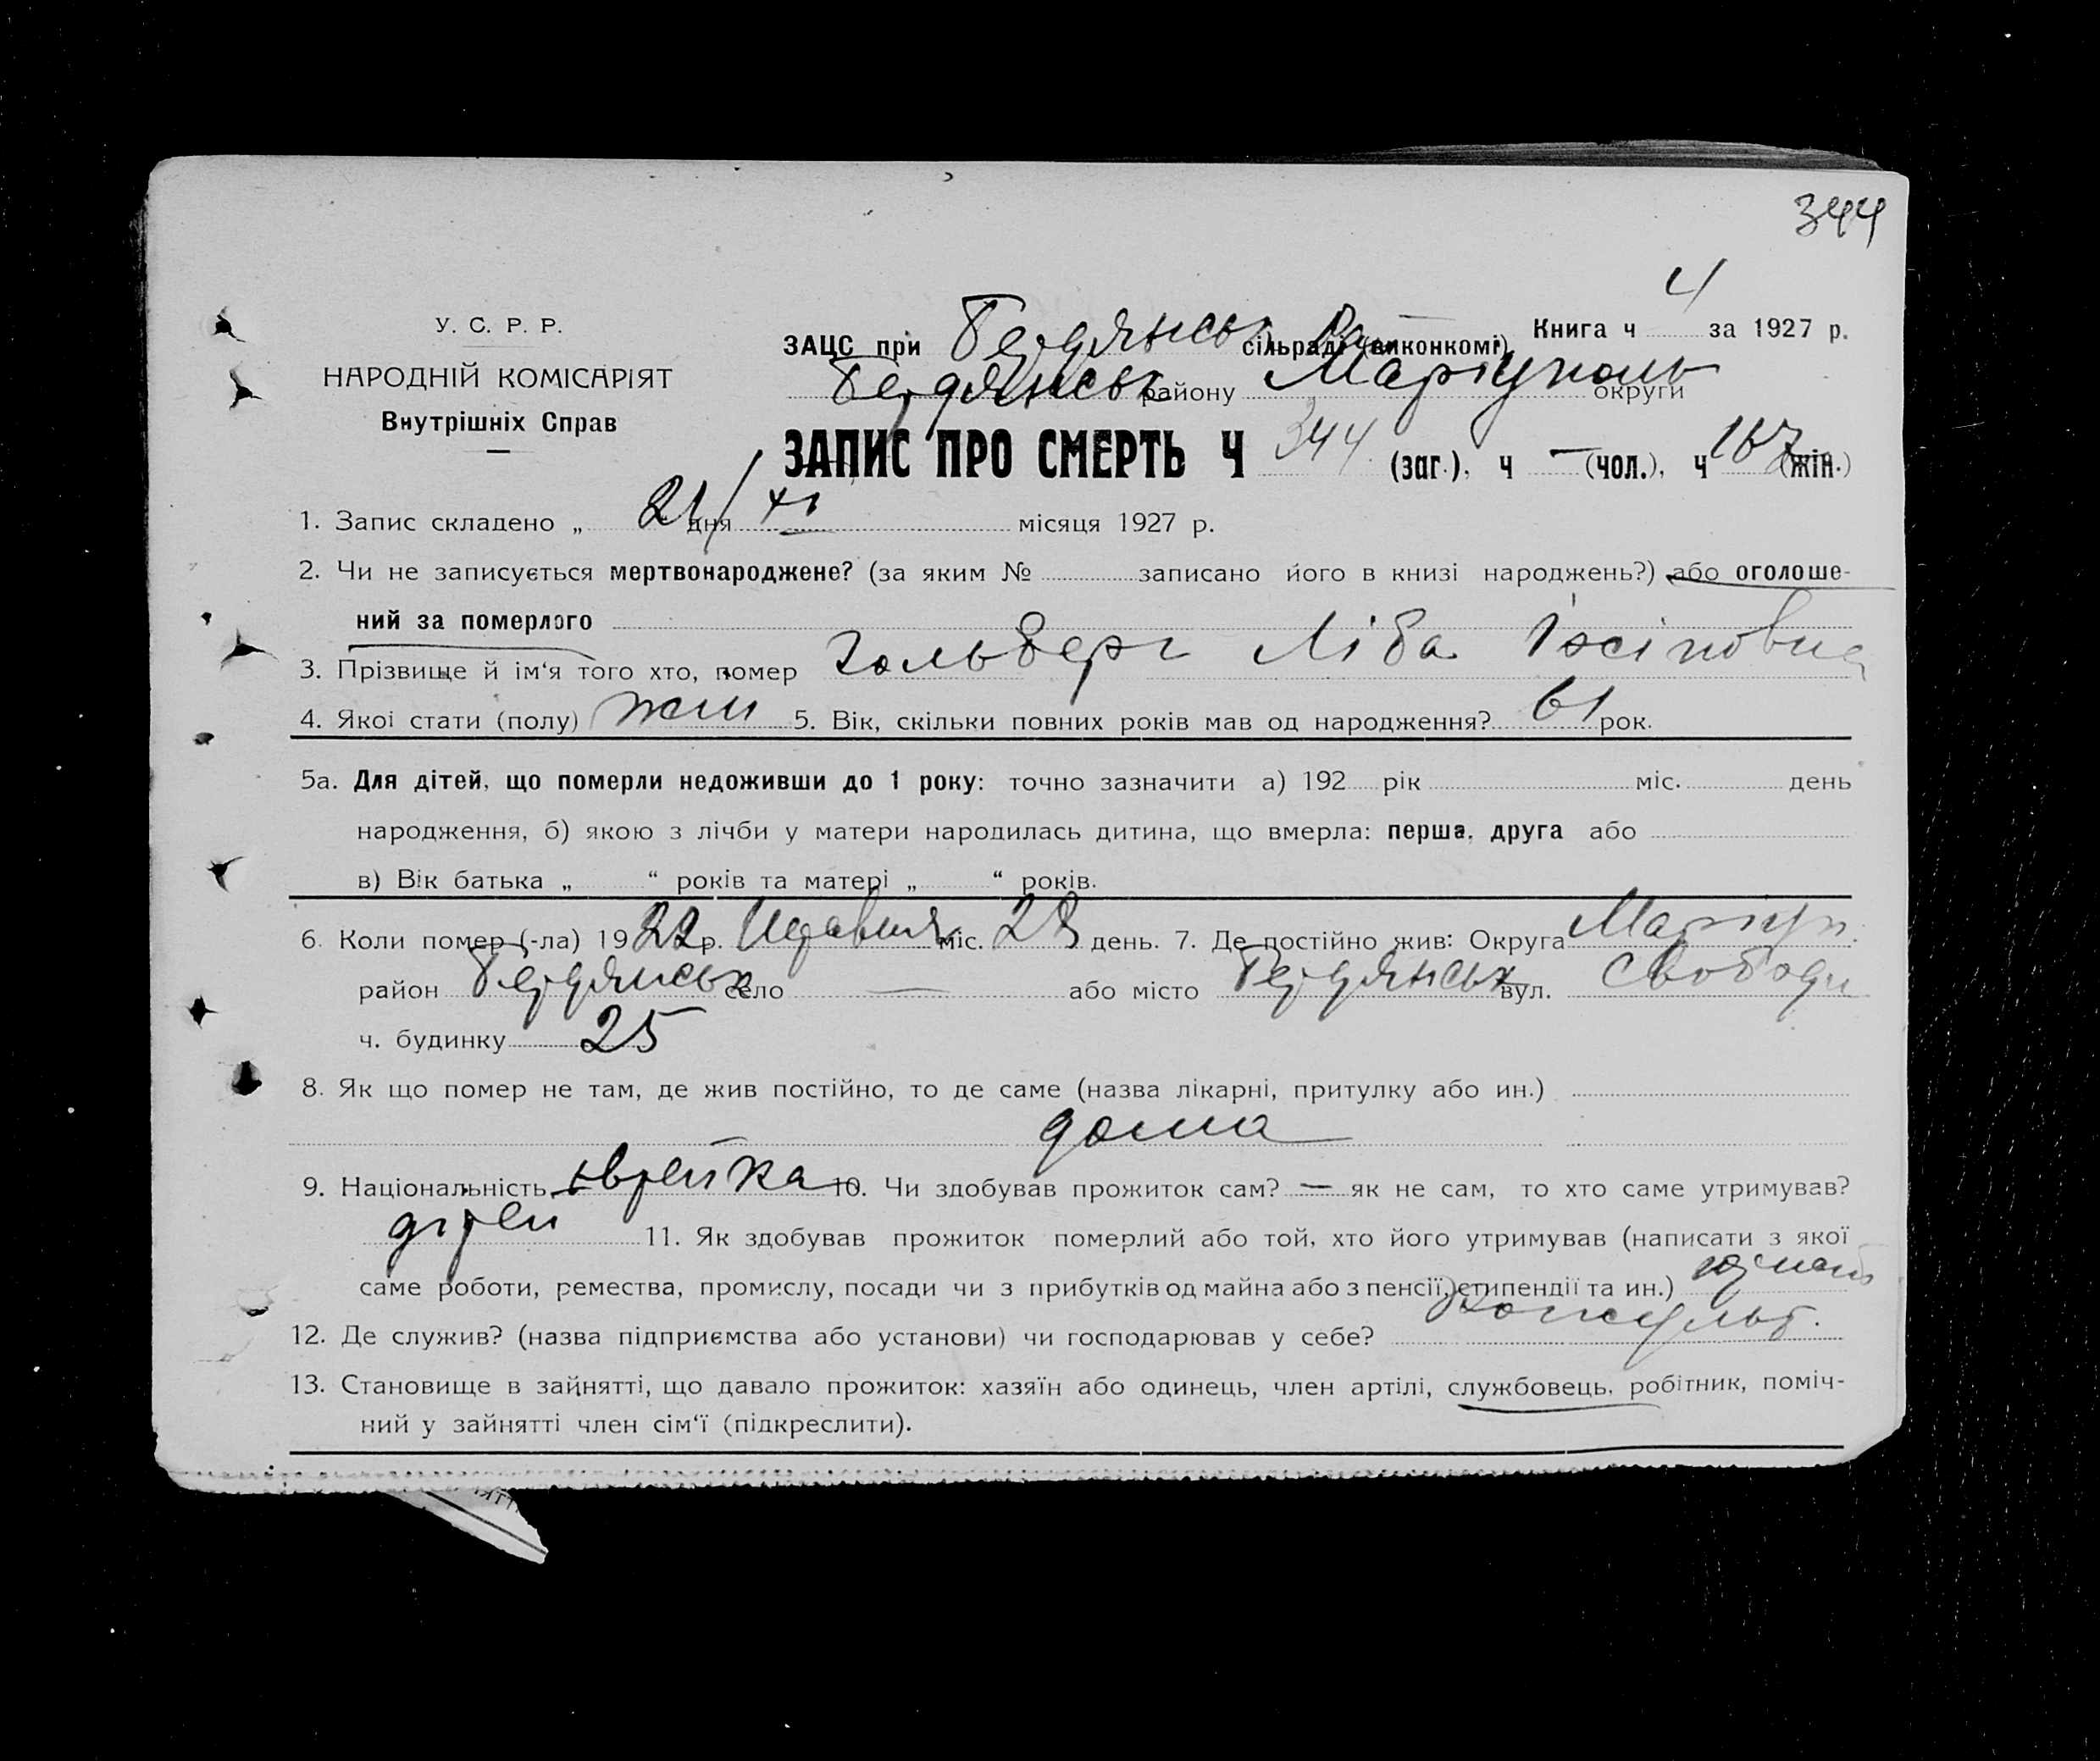 344
У. С. Р. Р.
НАРОДНІЙ КОМІСАРІЯТ
Внутрішніх Справ
ЗАЦС при Бердянськ сільраді (виконкомі) Книга ч 4 за 1927 р.
Бердянськ району Маріуполь округи
ЗАПИС ПРО СМЕРТЬ Ч 344 (заг.), ч — (чол.), ч 167 (жін.)
1. Запис складено „ 21/ дня XI місяця 1927 р.
2. Чи не записується мертвонароджене? (за яким № записано його в книзі народжень?) або оголоше-
ний за померлого
3. Прізвище й ім‘я того хто, помер Гольберг Ліба Іосіповна
4. Якої стати (полу) жін 5. Вік, скільки повних років мав од народження? 61 рок.
5а. Для дітей, що померли недоживши до 1 року: точно зазначити а) 192 рік міс. день
народження, б) якою з лічби у матери народилась дитина, що вмерла: перша, друга або
в) Вік батька „ “ років та матері „ “ років.
6. Коли помер (-ла) 1922 р. міс. 28 день. 7. Де постійно жив: Округа Маріуп.
район Бердянськ село — або місто Бердянськ вул. Свободи
ч. будинку 25
8. Як що помер не там, де жив постійно, то де саме (назва лікарні, притулку або ин.)
дома
9. Національність єврейка 10. Чи здобував прожиток сам? — як не сам, то хто саме утримував?
11. Як здобував прожиток померлий або той, хто його утримував (написати з якої
саме роботи, ремества, промислу, посади чи з прибутків од майна або з пенсії, стипендії та ин.)
консульт.
12. Де служив? (назва підприємства або установи) чи господарював у себе?
13. Становище в зайнятті, що давало прожиток: хазяїн або одинець, член артілі, службовець, робітник, поміч-
ний у зайнятті член сім‘ї (підкреслити).